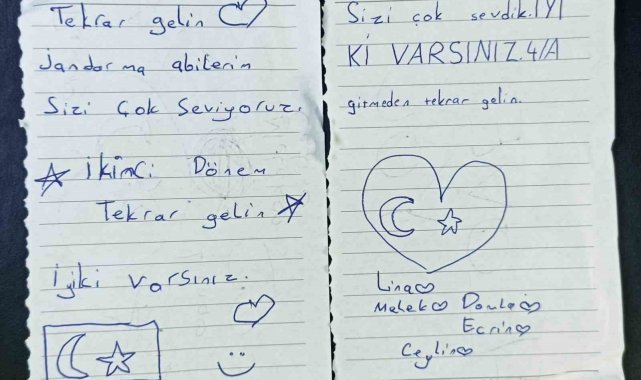 Tekrar gelin
Jandarma abilerim
Sizi çok Seviyoruz.
İkinci Dönem
Tekrar gelin
İyiki varsınız.
Sizi çok sevdik. İYİ
Kİ VARSINIZ. 4/A
gitmeden tekrar gelin.
Lina
Melek
Ecrin
Ceylin